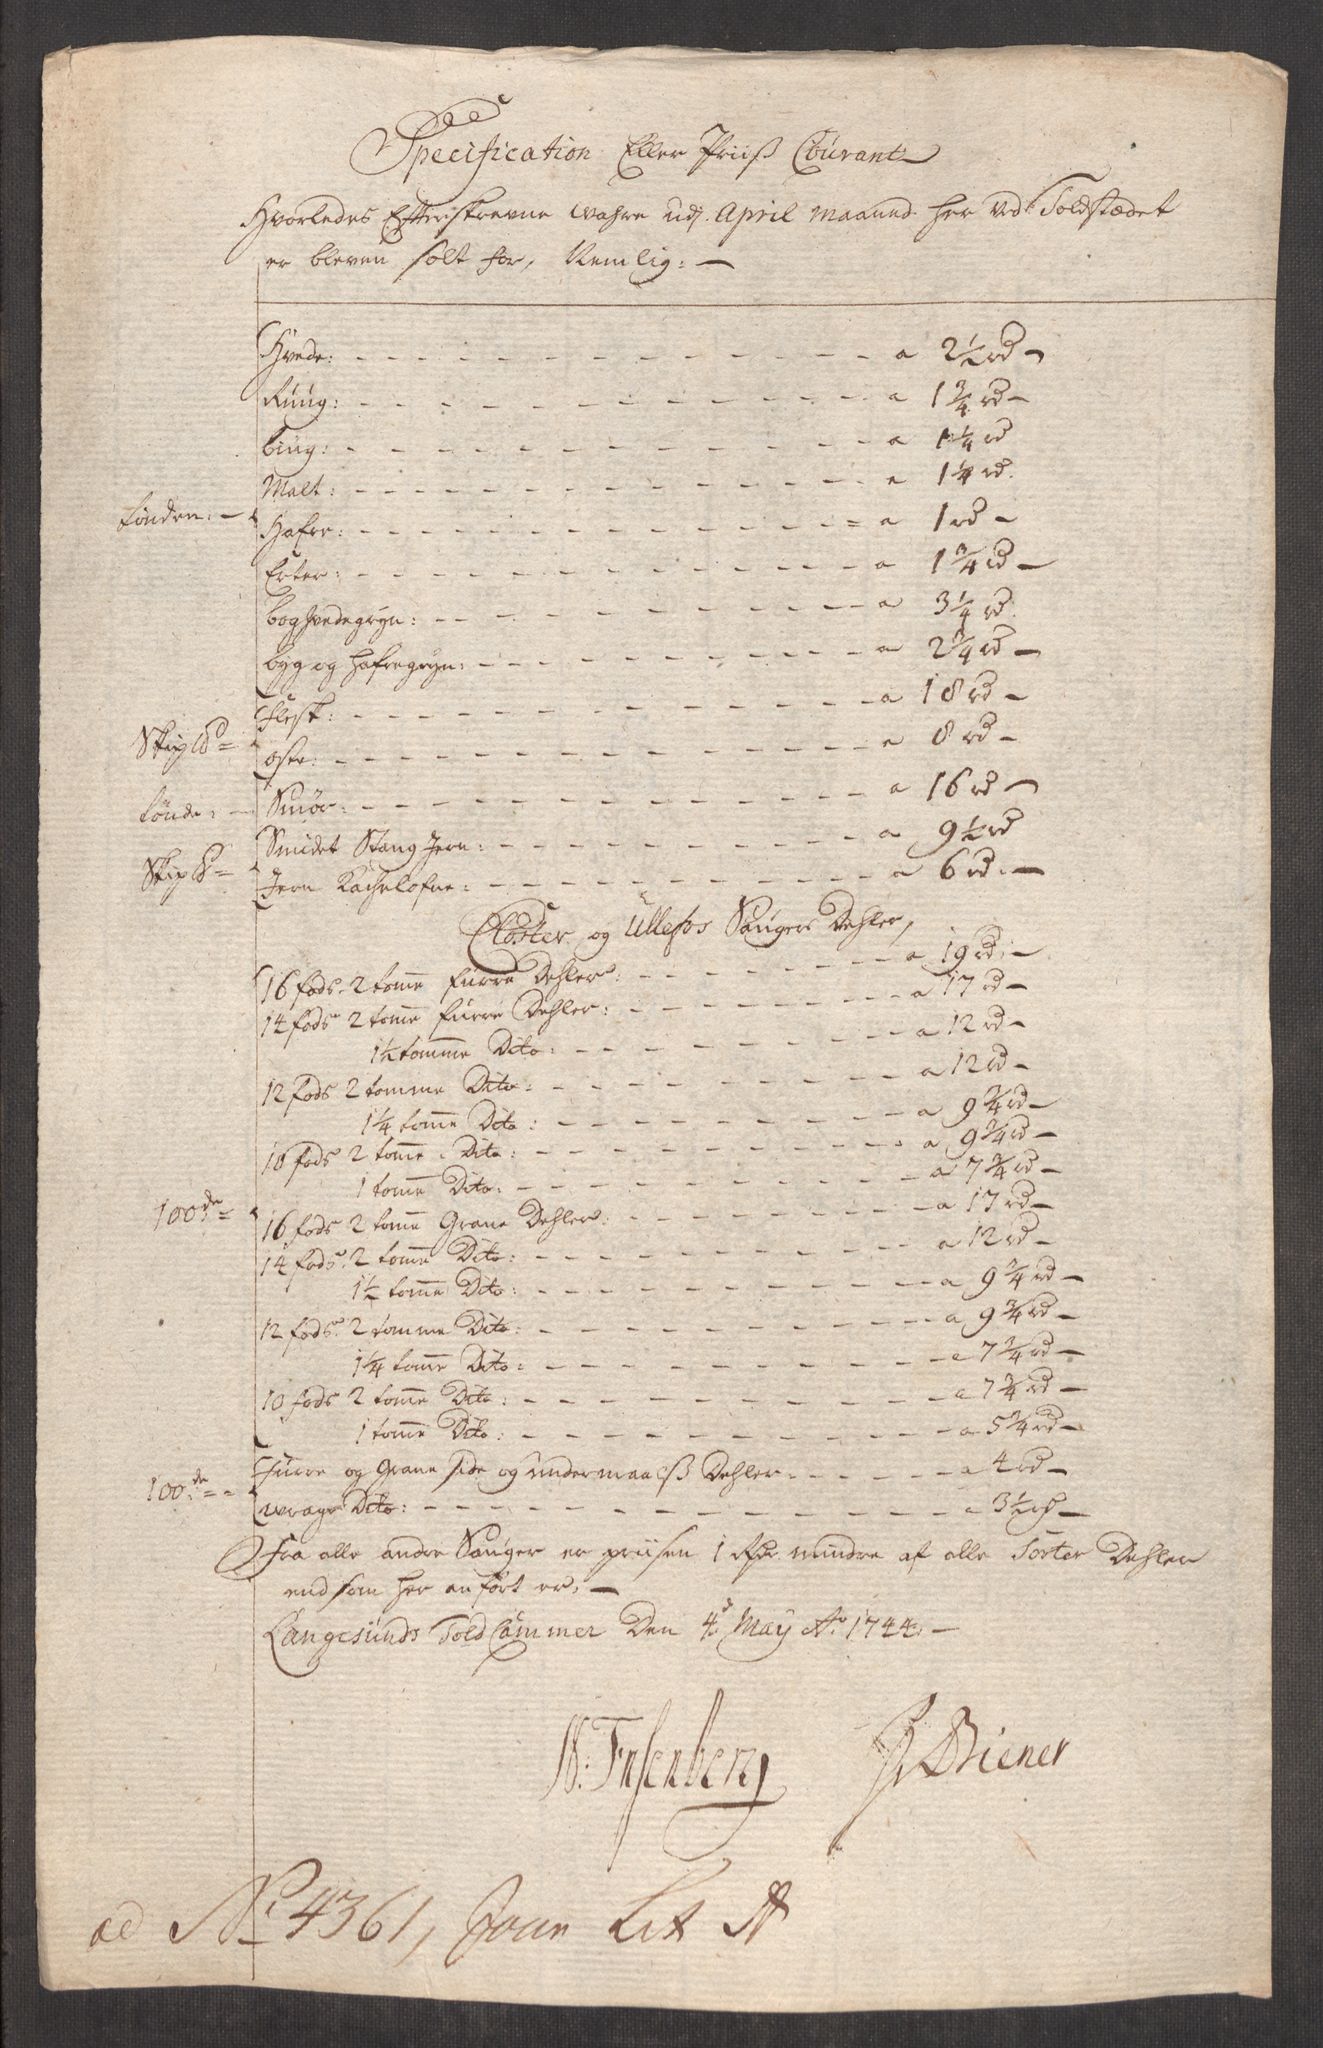 Specification Eller Priiß Courant
Hvorledes Efterskrevne wahre udj. April maaned her ved Toldstædet
er bleven solt for, Nemlig:
Hvede: a 2½ rd
Rúúg: a 1¾ rd
búúg: a 1¼ rd
Malt: a 1¼ rd
tønden: Hafre: a 1 rd
Erter: a 1¾ rd
boghvedegryn: a 3¼ rd
byg og hafregryn: a 2¾ rd
Flesk: a 18 rd
Skip℔ oste: a 8 rd
tønde: Smør: a 16 rd
Smidet Stang Jern: a 9½ rd
Skip℔ Jern Kachelofne: a 6 rd
Closter og Ullefos Saúgers Dehler,
16 fods 2 tom̅e fúrre Dehler: a 19 rd
14 fods 2 tom̅e fúrre Dehler: a 17 rd
1½ tomme Dito: a 12 rd
12 fods 2 tomme Dito: a 12 rd
1¼ tom̅e Dito: a 9¾ rd
10 fods 2 tom̅e Dito: a 9¾ rd
1 tom̅e Dito: a 7¾ rd
100de 16 fods 2 tom̅e Grane Dehler: a 17 rd
14 fods 2 tom̅e Dito: a 12 rd
1½ tom̅e Dito: a 9¾ rd
12 fods 2 tomme Dito: a 9¾ rd
1¼ tom̅e Dito: a 7¾ rd
10 fods 2 tom̅e Dito: a 7¾ rd
1 tom̅e Dito: a 5¾ rd
Fúrre og Grane side og úndermaalß Dehler a 4 rd
100de wrags Dito: a 3½ rd
Fra alle andre Saúger er priisen 1 Rdr mindre af alle Sorter Dehler
end som her anfört er,
Langesúnds Told Cammer Den 4d May Ao 1744
J Biener
ad No 4361, Jour Lit A